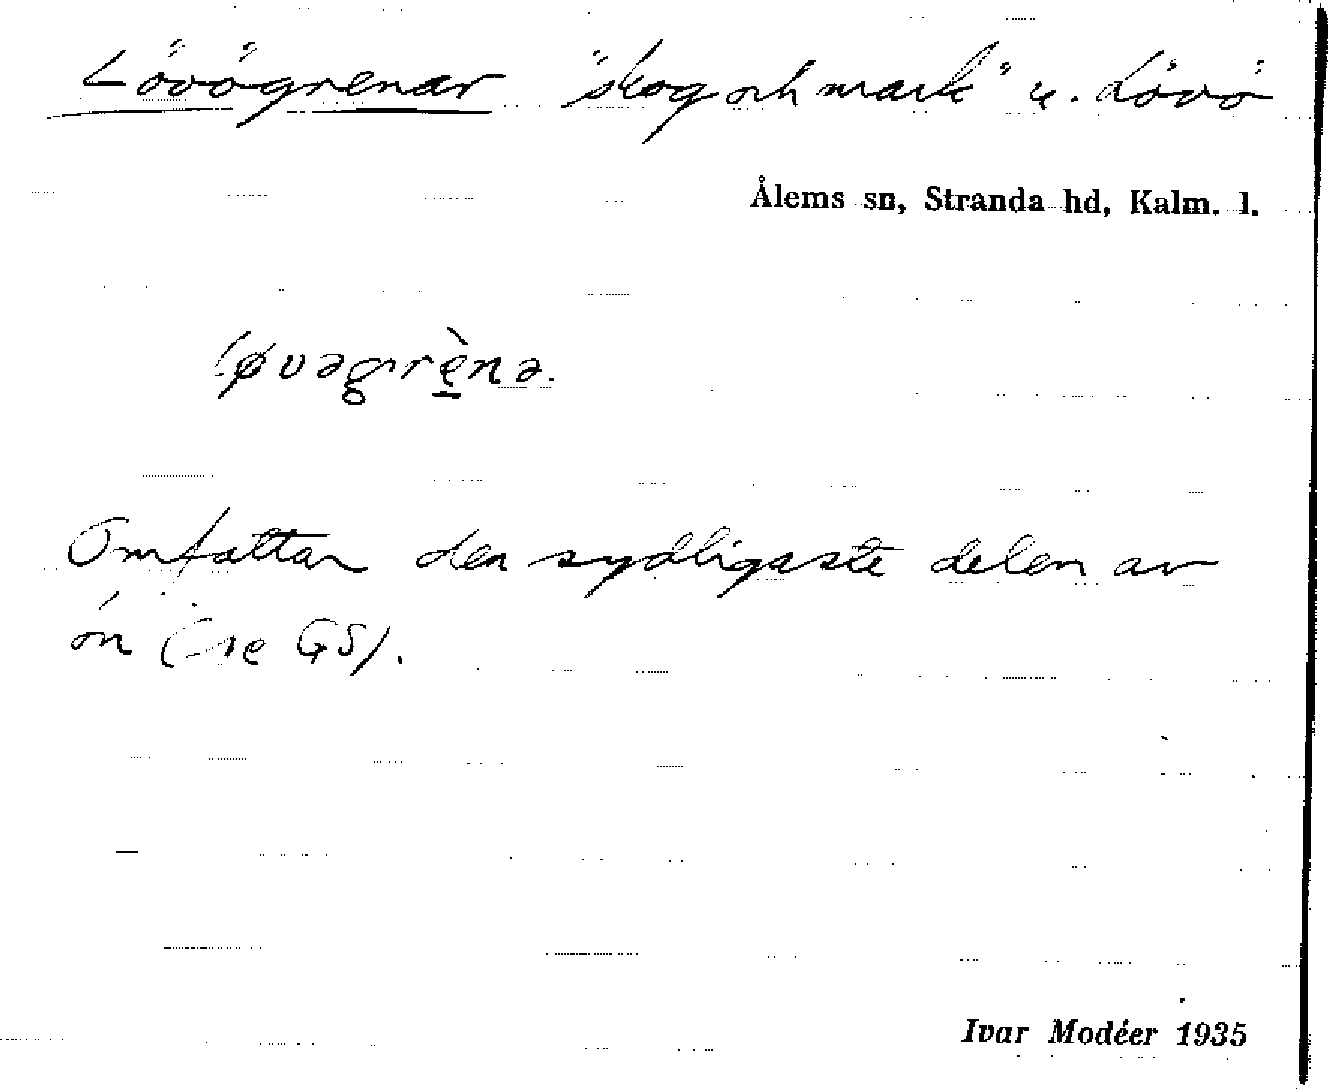 Lövögrenar "skog och mark" u. Lövö
Ålems sn, Stranda hd, Kalm. l.
løvəgrènə.
Omfattar den sydligaste delen av
ön (se GS).
Ivar Modéer 1935